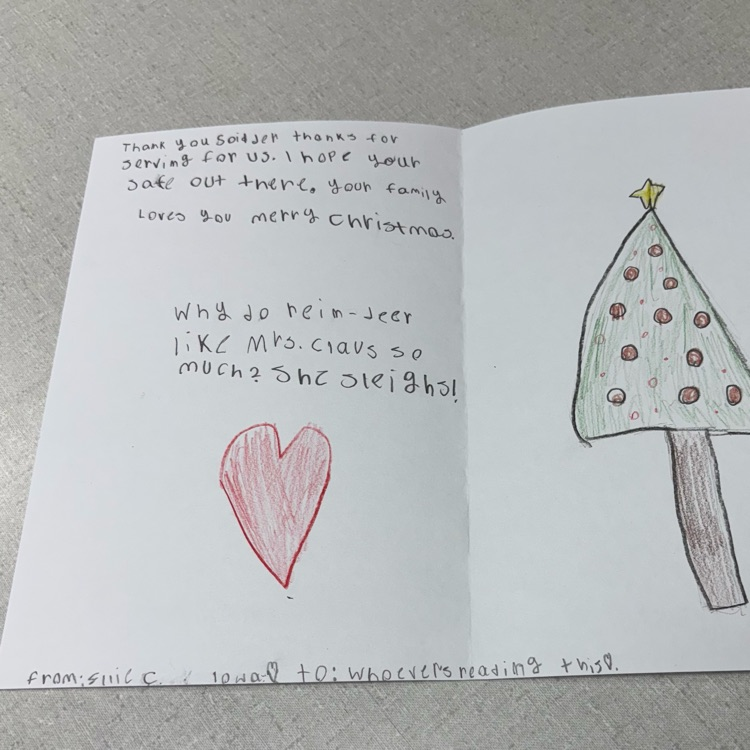 Thank you Soidjer thanks for
serving for us. I hope your
safe out there. your family
Loves you merry Christmas.
Why do reim-deer
like Mrs. Claus so
much? She sleighs!
from: C. Iowa♡ to: whoevers reading this♡.